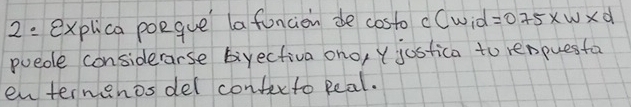 2: Explica porque la función de costo c(w,d=075×w×d
puede considerarse biyectiva ono, y jostica tu respuesta
en termenos del contexto Real.